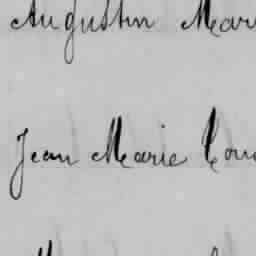 Augustin Mari
Jean Marie Cou